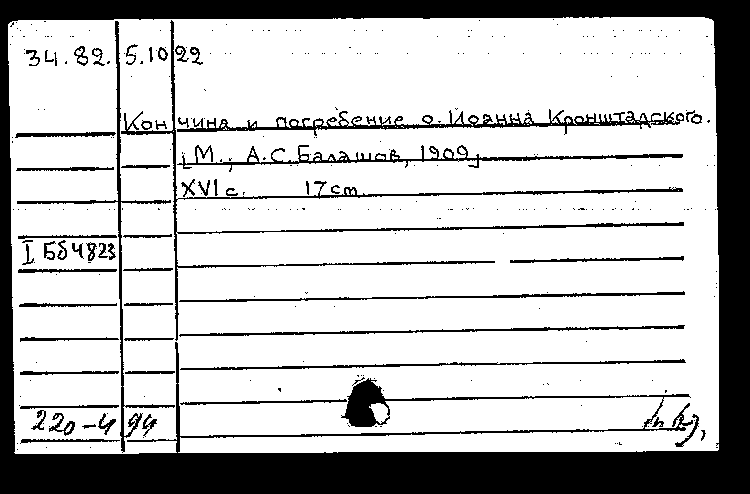 34.82. 5.10 22
Кончина и погребение о. Иоанна Кронштадского.
[М., А.С. Балашов, 1909]
XVI с. 17 cm
I Бб 4823
220-4 94